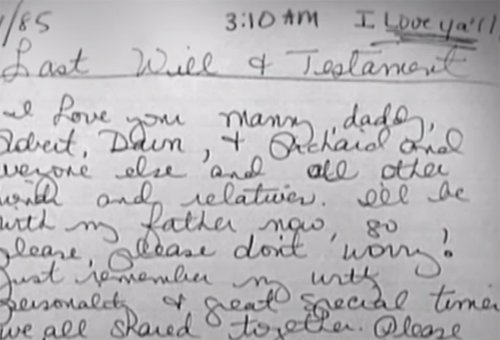 /85 3:10 AM I Love ya'll
Last Will & Testament
I Love you mommy, daddy,
Robert, Dawn, & Richard and
veryone else and all other
and relatives. I'll be
with my father now, so
please, please don't worry!
Just remember my witty
personality & great special times
we all shared together. Please